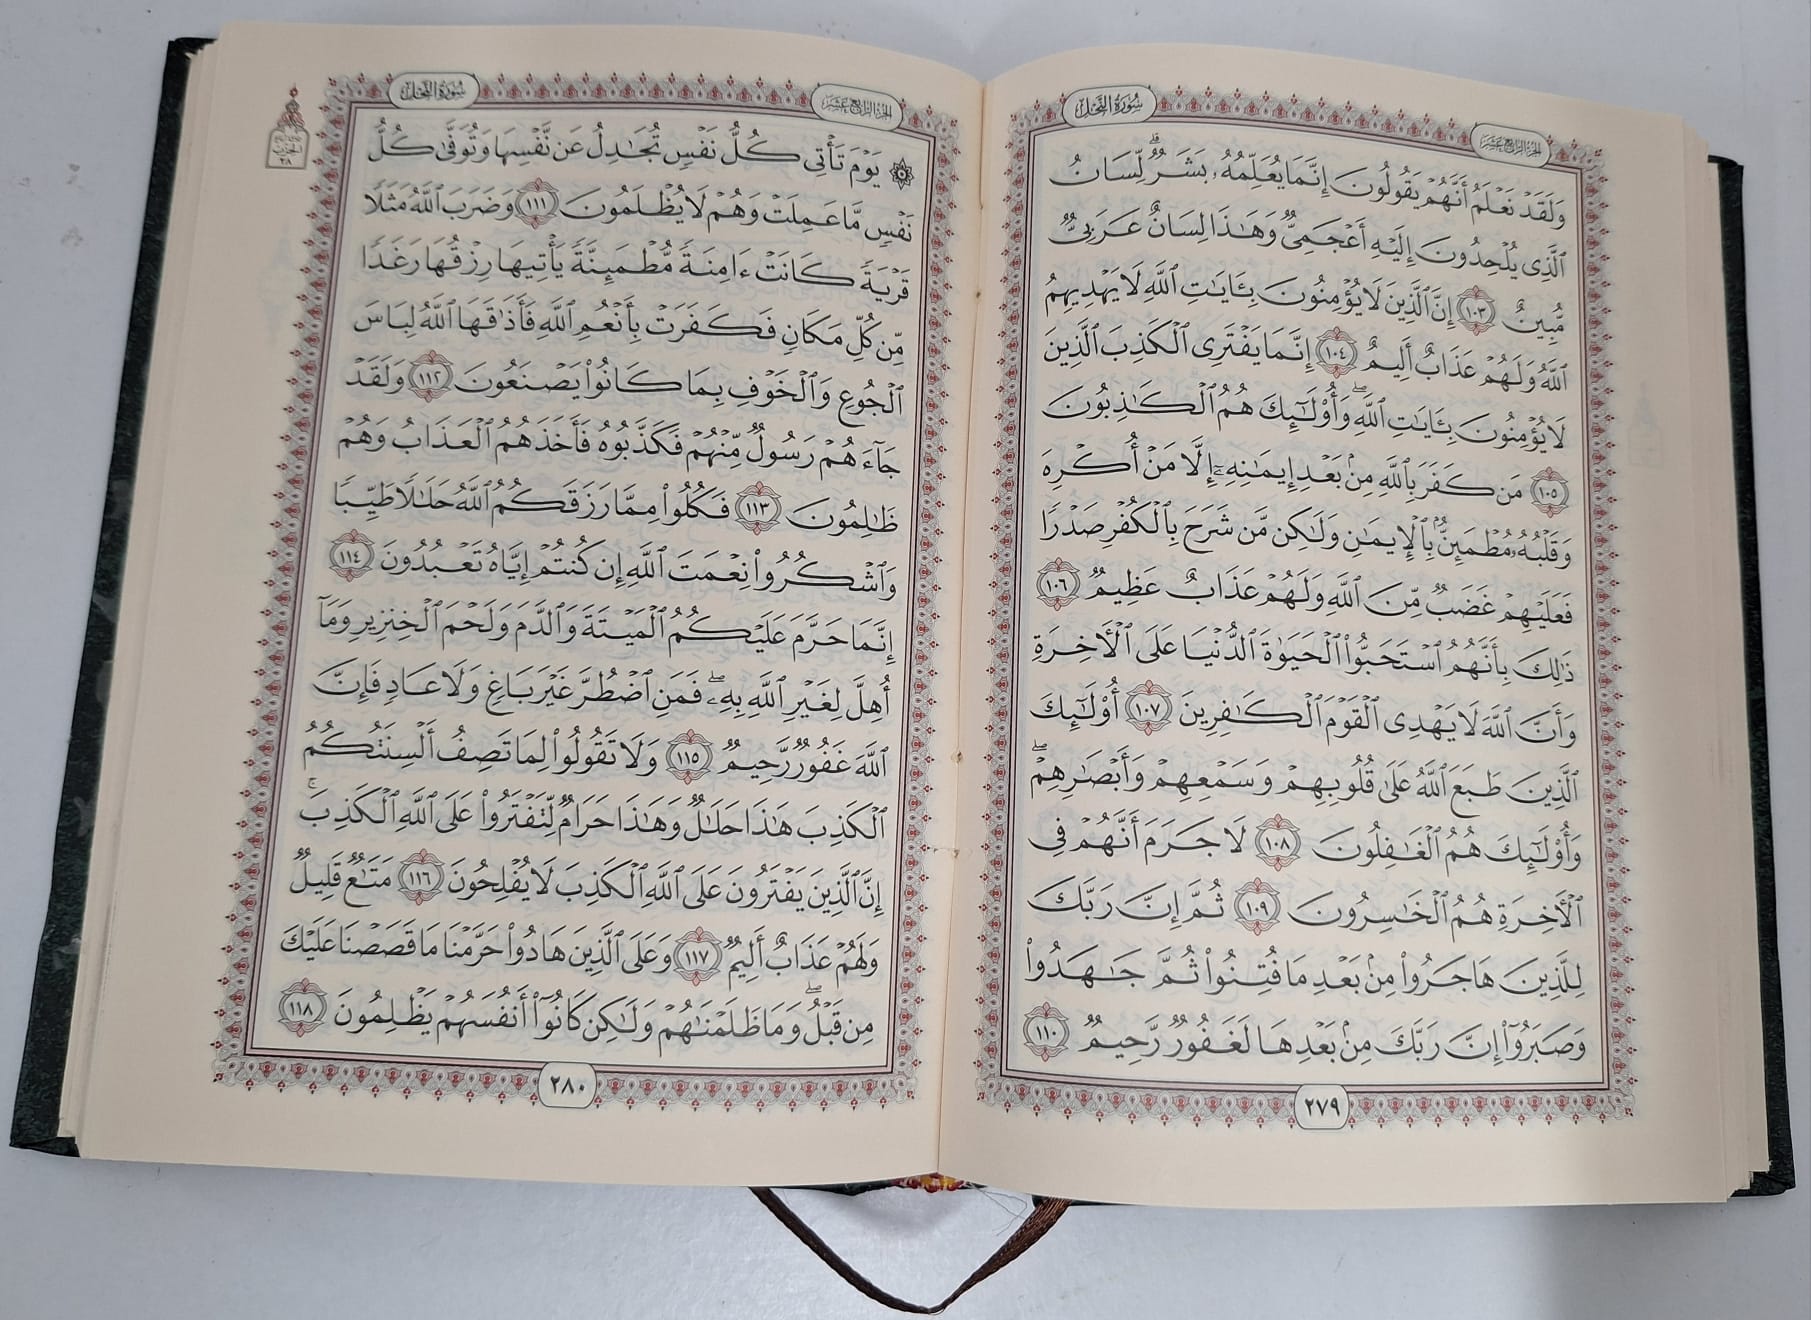 الجزء الرابع عشر
سورة النحل
وَلَقَدْ نَعْلَمُ أَنَّهُمْ يَقُولُونَ إِنَّمَا يُعَلِّمُهُۥ بَشَرٌۗ لِّسَانُ
ٱلَّذِى يُلْحِدُونَ إِلَيْهِ أَعْجَمِىٌّ وَهَٰذَا لِسَانٌ عَرَبِىٌّ
مُّبِينٌ ١٠٣ إِنَّ ٱلَّذِينَ لَا يُؤْمِنُونَ بِـَٔايَٰتِ ٱللَّهِ لَا يَهْدِيهِمُ
ٱللَّهُ وَلَهُمْ عَذَابٌ أَلِيمٌ ١٠٤ إِنَّمَا يَفْتَرِى ٱلْكَذِبَ ٱلَّذِينَ
لَا يُؤْمِنُونَ بِـَٔايَٰتِ ٱللَّهِۖ وَأُو۟لَٰٓئِكَ هُمُ ٱلْكَٰذِبُونَ
١٠٥ مَن كَفَرَ بِٱللَّهِ مِنۢ بَعْدِ إِيمَٰنِهِۦٓ إِلَّا مَنْ أُكْرِهَ
وَقَلْبُهُۥ مُطْمَئِنٌّۢ بِٱلْإِيمَٰنِ وَلَٰكِن مَّن شَرَحَ بِٱلْكُفْرِ صَدْرًا
فَعَلَيْهِمْ غَضَبٌ مِّنَ ٱللَّهِ وَلَهُمْ عَذَابٌ عَظِيمٌ ١٠٦
ذَٰلِكَ بِأَنَّهُمُ ٱسْتَحَبُّوا۟ ٱلْحَيَوٰةَ ٱلدُّنْيَا عَلَى ٱلْـَٔاخِرَةِ
وَأَنَّ ٱللَّهَ لَا يَهْدِى ٱلْقَوْمَ ٱلْكَٰفِرِينَ ١٠٧ أُو۟لَٰٓئِكَ
ٱلَّذِينَ طَبَعَ ٱللَّهُ عَلَىٰ قُلُوبِهِمْ وَسَمْعِهِمْ وَأَبْصَٰرِهِمْۖ
وَأُو۟لَٰٓئِكَ هُمُ ٱلْغَٰفِلُونَ ١٠٨ لَا جَرَمَ أَنَّهُمْ فِى
ٱلْـَٔاخِرَةِ هُمُ ٱلْخَٰسِرُونَ ١٠٩ ثُمَّ إِنَّ رَبَّكَ
لِلَّذِينَ هَاجَرُوا۟ مِنۢ بَعْدِ مَا فُتِنُوا۟ ثُمَّ جَٰهَدُوا۟
وَصَبَرُوٓا۟ إِنَّ رَبَّكَ مِنۢ بَعْدِهَا لَغَفُورٌ رَّحِيمٌ ١١٠
٢٧٩
الجزء الرابع عشر
سورة النحل
۞ يَوْمَ تَأْتِى كُلُّ نَفْسٍ تُجَٰدِلُ عَن نَّفْسِهَا وَتُوَفَّىٰ كُلُّ
نَفْسٍ مَّا عَمِلَتْ وَهُمْ لَا يُظْلَمُونَ ١١١ وَضَرَبَ ٱللَّهُ مَثَلًا
قَرْيَةً كَانَتْ ءَامِنَةً مُّطْمَئِنَّةً يَأْتِيهَا رِزْقُهَا رَغَدًا
مِّن كُلِّ مَكَانٍ فَكَفَرَتْ بِأَنْعُمِ ٱللَّهِ فَأَذَٰقَهَا ٱللَّهُ لِبَاسَ
ٱلْجُوعِ وَٱلْخَوْفِ بِمَا كَانُوا۟ يَصْنَعُونَ ١١٢ وَلَقَدْ
جَآءَهُمْ رَسُولٌ مِّنْهُمْ فَكَذَّبُوهُ فَأَخَذَهُمُ ٱلْعَذَابُ وَهُمْ
ظَٰلِمُونَ ١١٣ فَكُلُوا۟ مِمَّا رَزَقَكُمُ ٱللَّهُ حَلَٰلًا طَيِّبًا
وَٱشْكُرُوا۟ نِعْمَتَ ٱللَّهِ إِن كُنتُمْ إِيَّاهُ تَعْبُدُونَ ١١٤
إِنَّمَا حَرَّمَ عَلَيْكُمُ ٱلْمَيْتَةَ وَٱلدَّمَ وَلَحْمَ ٱلْخِنزِيرِ وَمَآ
أُهِلَّ لِغَيْرِ ٱللَّهِ بِهِۦۖ فَمَنِ ٱضْطُرَّ غَيْرَ بَاغٍ وَلَا عَادٍ فَإِنَّ
ٱللَّهَ غَفُورٌ رَّحِيمٌ ١١٥ وَلَا تَقُولُوا۟ لِمَا تَصِفُ أَلْسِنَتُكُمُ
ٱلْكَذِبَ هَٰذَا حَلَٰلٌ وَهَٰذَا حَرَامٌ لِّتَفْتَرُوا۟ عَلَى ٱللَّهِ ٱلْكَذِبَۚ
إِنَّ ٱلَّذِينَ يَفْتَرُونَ عَلَى ٱللَّهِ ٱلْكَذِبَ لَا يُفْلِحُونَ ١١٦ مَتَٰعٌ قَلِيلٌ
وَلَهُمْ عَذَابٌ أَلِيمٌ ١١٧ وَعَلَى ٱلَّذِينَ هَادُوا۟ حَرَّمْنَا مَا قَصَصْنَا عَلَيْكَ
مِن قَبْلُۖ وَمَا ظَلَمْنَٰهُمْ وَلَٰكِن كَانُوٓا۟ أَنفُسَهُمْ يَظْلِمُونَ ١١٨
٢٨٠
الحزب
٢٨